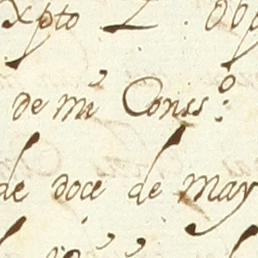 xpto
de mi Consso:
de doce de may